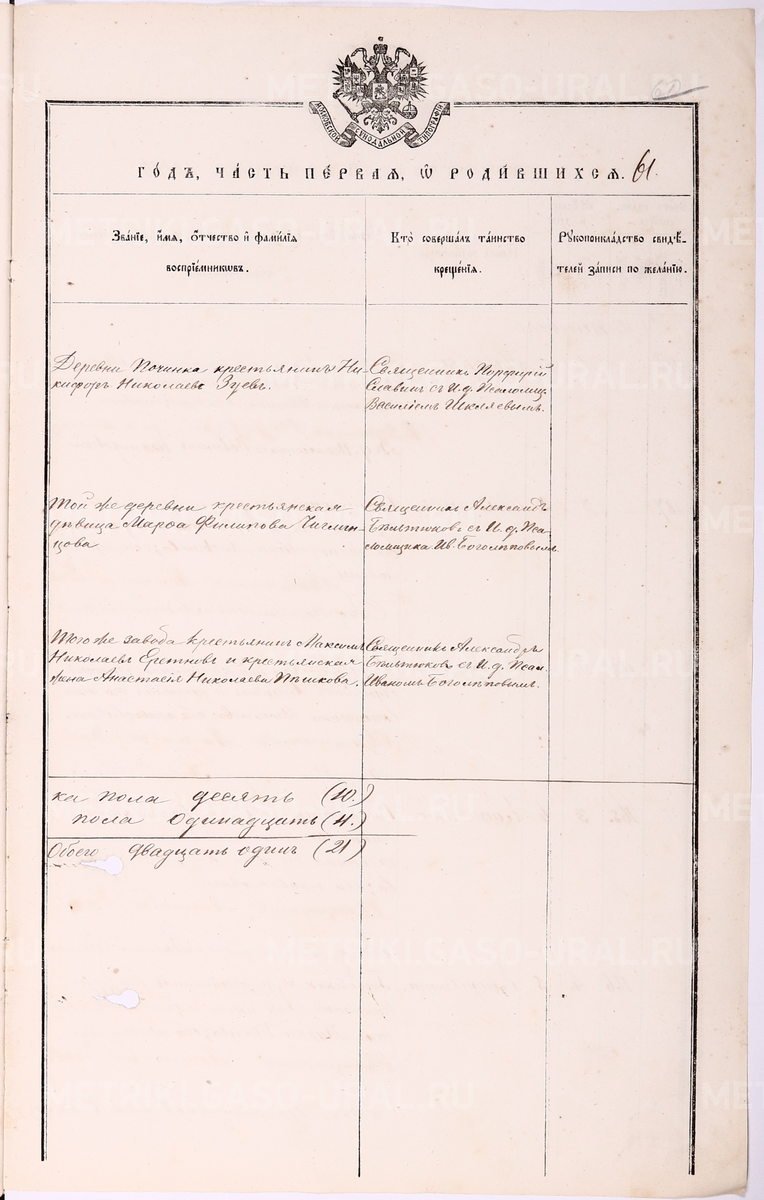 62
МОСКОВСКОЙ СѴНОДАЛЬНОЙ ТИПОГРАФІИ
ГО́ДЪ, ЧА́СТЬ ПЕ́РВАЯ, Ѡ҆ РОДИ́ВШИХСЯ. 61.
Зва́нїе, и҆́мя, ѻ҆́тчество и҆ фами́лїя
воспрїе́мникωвъ.
Кто̀ соверша́лъ та́инство
креще́нїя.
Рꙋкоприкла́дство свидѣ́-
телей за́писи по жела́нїю.
Деревни Починка крестьянинъ Ни-
кифоръ Николаевъ Зуевъ.
Священникъ Порфирій
Славинъ съ И. д. Псаломщ.
Василіемъ Шкляевымъ.
Той же деревни крестьянская
дѣвица Марѳа Филипова
цова
Священникъ Александръ
съ И. д. Пса-
ломщика Ив. Боголѣповымъ.
Того же завода крестьянинъ Максимъ
Николаевъ и крестьянская
жена Анастасія Николаева Пѣшкова.
Священникъ Александръ
съ И. д. Псал.
Иваномъ Боголѣповымъ.
ка пола десять (10.)
пола одинадцать (11.)
Обоего двадцать одинъ (21)
METRIKI.GASO-URAL.RU